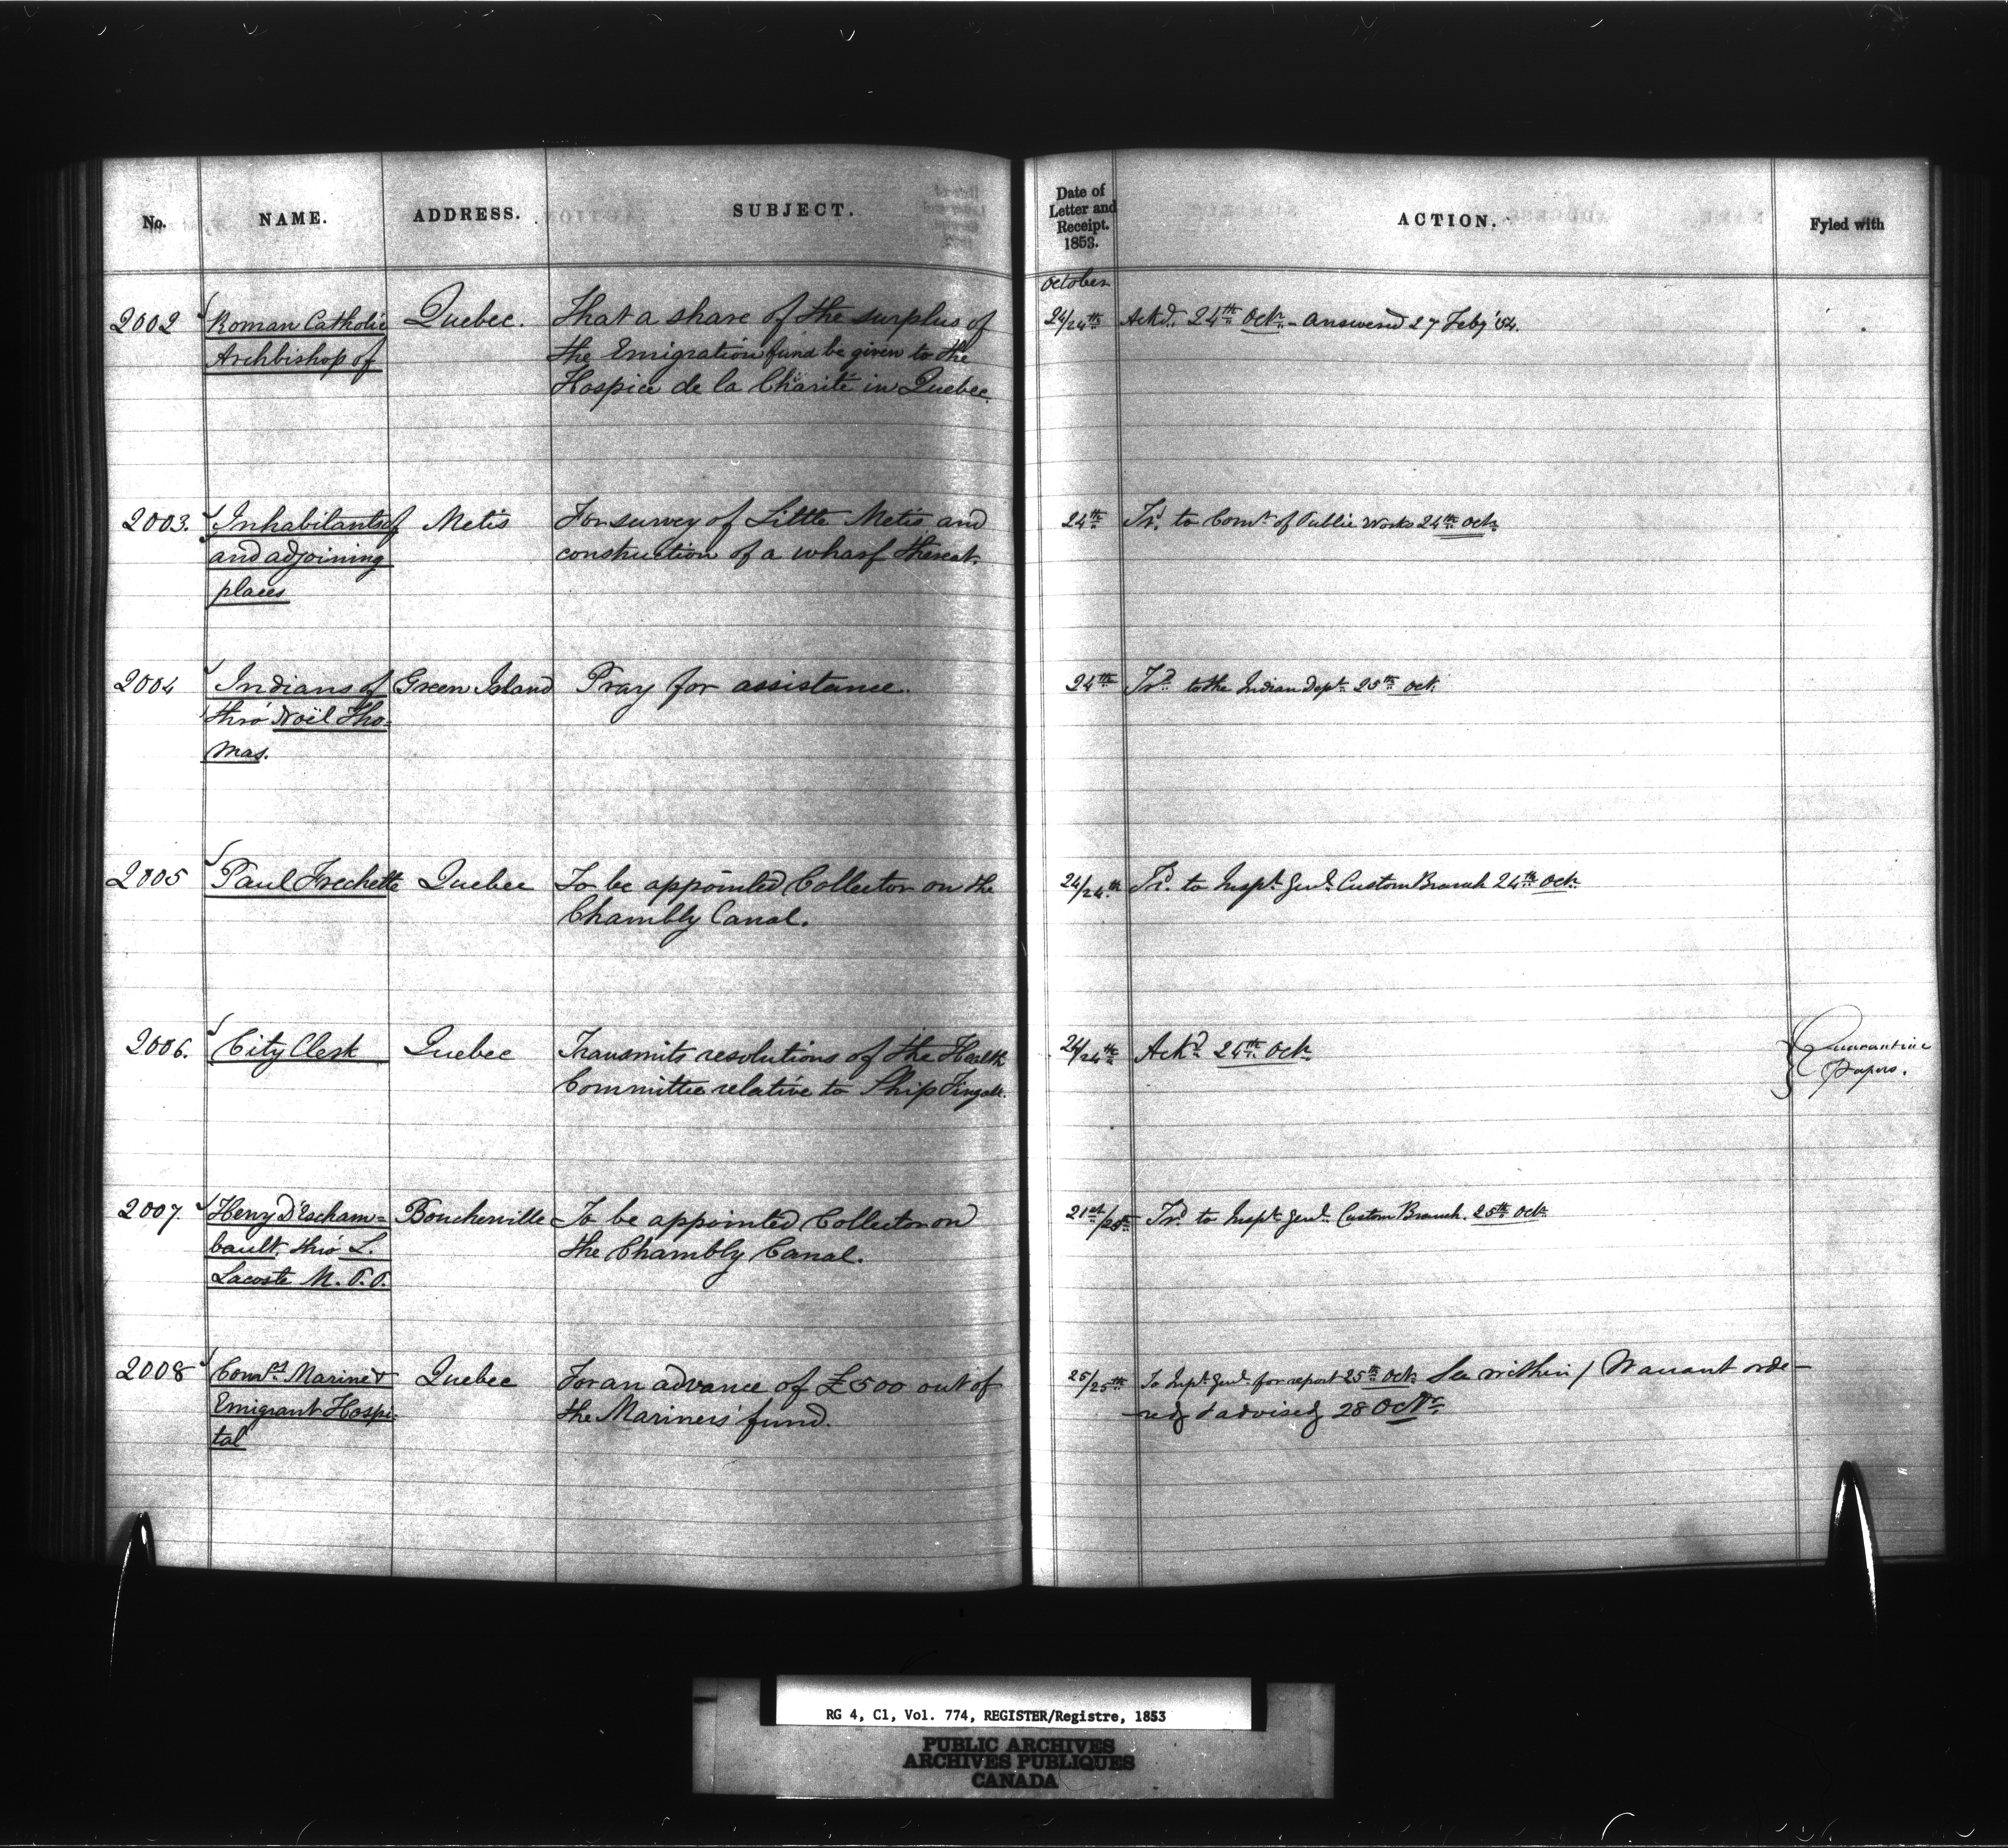 No. NAME. ADDRESS. SUBJECT. Date of Letter and Receipt. 1853. ACTION. Fyled with
October
2002 Roman Catholic Quebec. That a share of the surplus of 24/24th Ackd. 24th Octr. - Answered 27 Feby '54.
Archbishop of the Emigration fund be given to the
Hospice de la Charité in Quebec.
2003. Inhabitants of Metis For survey of Little Metis and 24th Trd. to Comrs. of Public Works 24th Octr.
and adjoining construction of a wharf thereat.
places
2004 Indians of Green Island Pray for assistance. 24th Trd. to the Indian Dept. 25th Oct.
thro' Noël Tho-
mas.
2005 Paul Frechette Quebec To be appointed Collector on the 24/24th Trd. to Inspt. Genl. Custom Branch 24th Oct.
Chambly Canal.
2006. City Clerk Quebec Transmits resolutions of the Health 24/24th Ackd. 24th Octr. Quarantine
Committee relative to Ship Fingal. Papers.
2007. Henry D'Escham- Boucherville To be appointed Collector on 21st/25th Trd. to Inspt. Genl. Custom Branch. 25th Octr.
bault, thro' L. the Chambly Canal.
Lacoste M.P.P.
2008 Comrs. Marine & Quebec For an advance of £500 out of 25/25th To Inspt. Genl. for report 25th Octr. See within / Warrant orde-
Emigrant Hospi- the Mariners' fund. red & advised 28 Octr.
tal
RG 4, C1, Vol. 774, REGISTER/Registre, 1853
PUBLIC ARCHIVES
ARCHIVES PUBLIQUES
CANADA